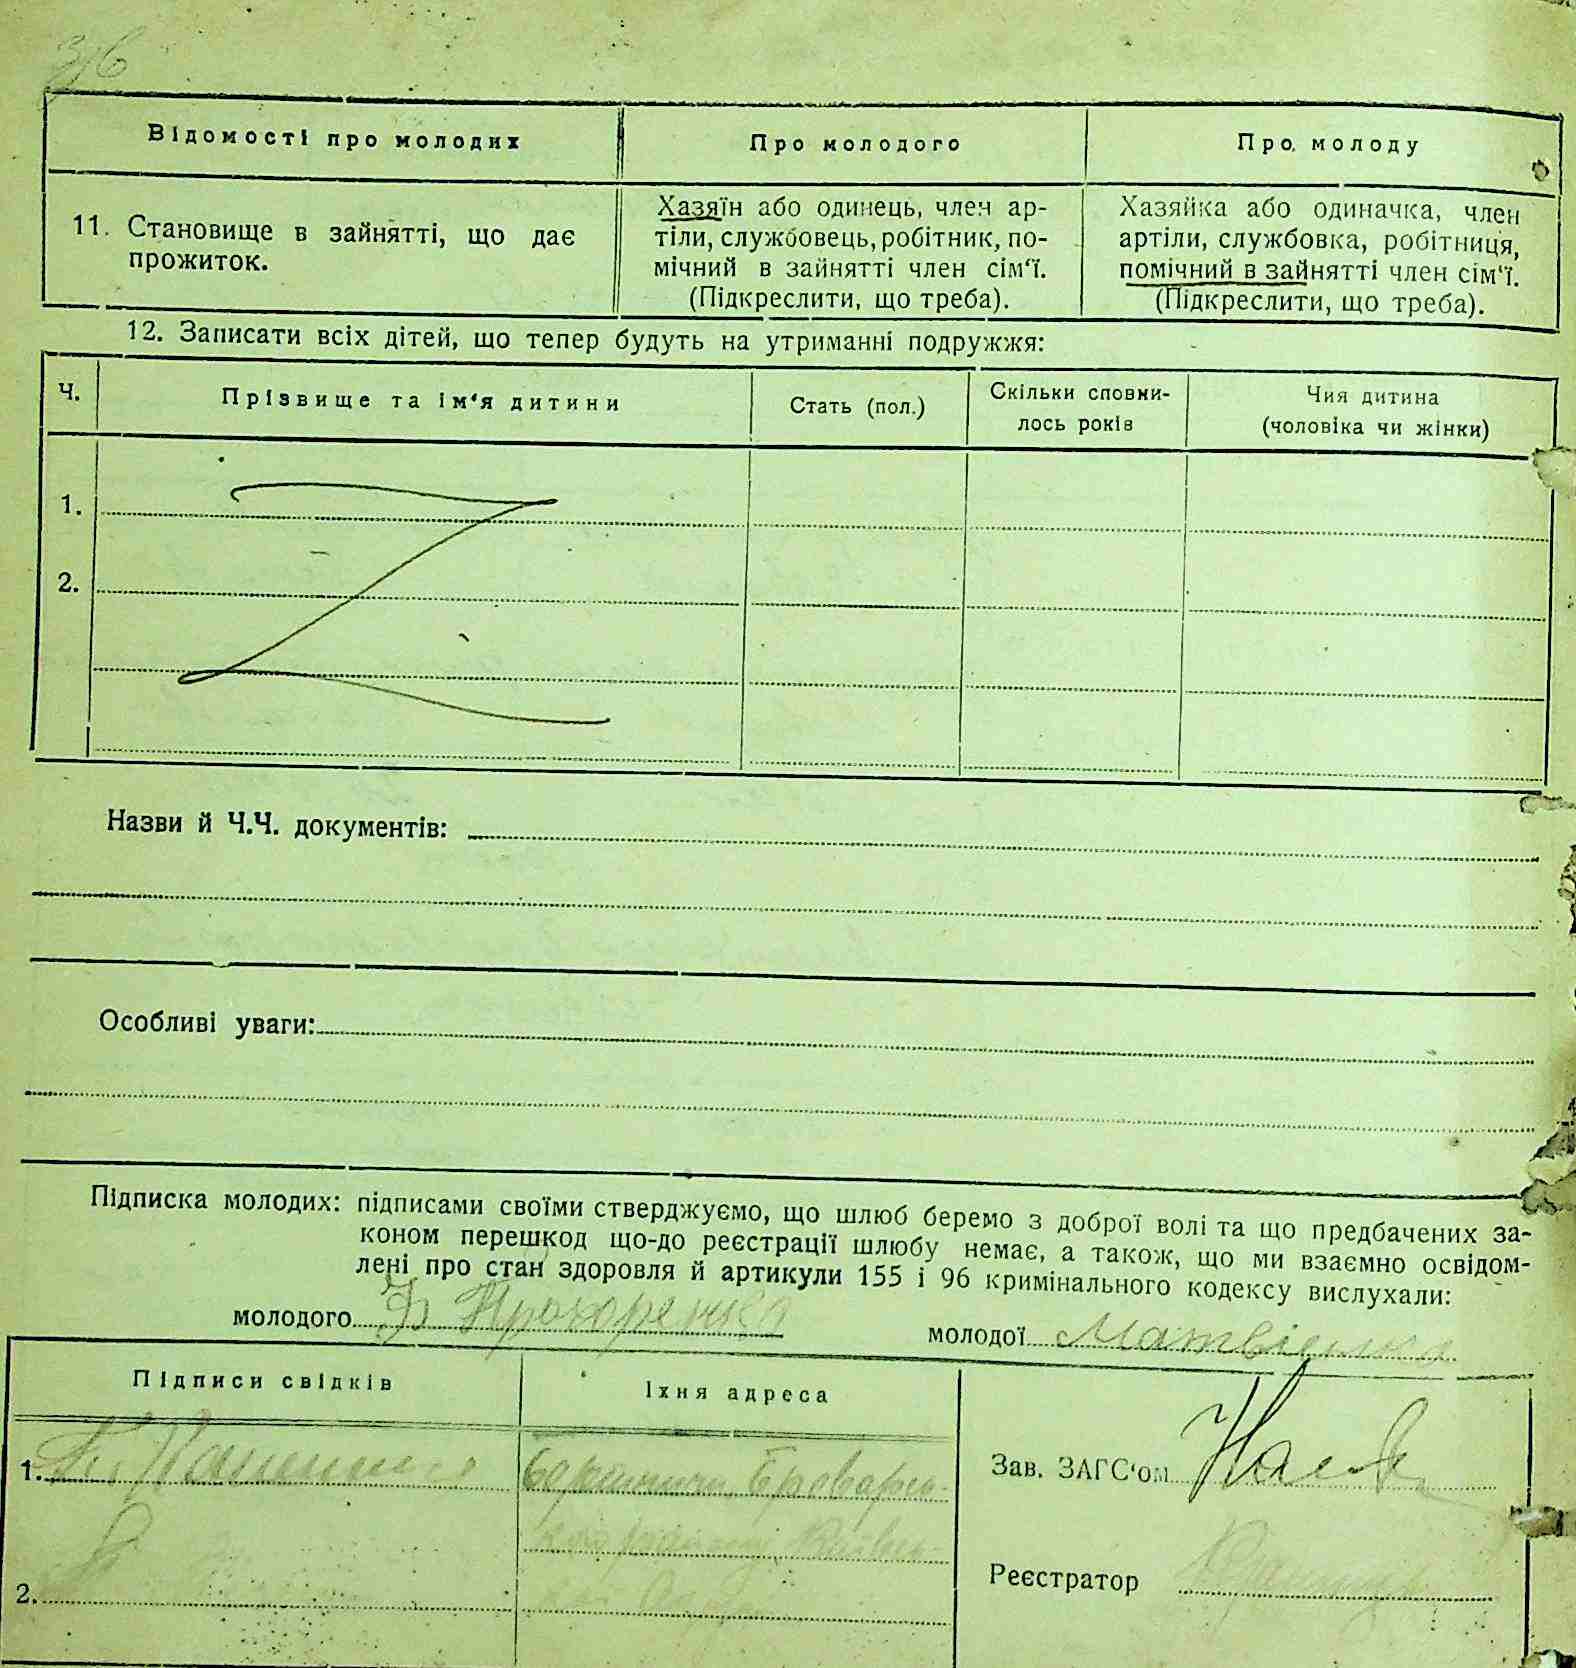 316
Відомості про молодих
Про молодого
Про молоду
11. Становище в зайнятті, що дає
прожиток.
Хазяїн або одинець, член ар-
тіли, службовець, робітник, по-
мічний в зайнятті член сім'ї.
(Підкреслити, що треба).
Хазяйка або одиначка, член
артіли, службовка, робітниця,
помічний в зайнятті член сім'ї.
(Підкреслити, що треба).
12. Записати всіх дітей, що тепер будуть на утриманні подружжя:
Ч.
Прізвище та ім'я дитини
Стать (пол.)
Скільки сповни-
лось років
Чия дитина
(чоловіка чи жінки)
1.
2.
Назви й Ч.Ч. документів:
Особливі уваги:
Підписка молодих: підписами своїми стверджуємо, що шлюб беремо з доброї волі та що предбачених за-
коном перешкод що-до реєстрації шлюбу немає, а також, що ми взаємно освідом-
лені про стан здоровля й артикули 155 і 96 кримінального кодексу вислухали:
молодого Прохоренко
молодої Матвієнко
Підписи свідків
Їхня адреса
1.
Броварсь-
2.
Зав. ЗАГС'ом
Реєстратор